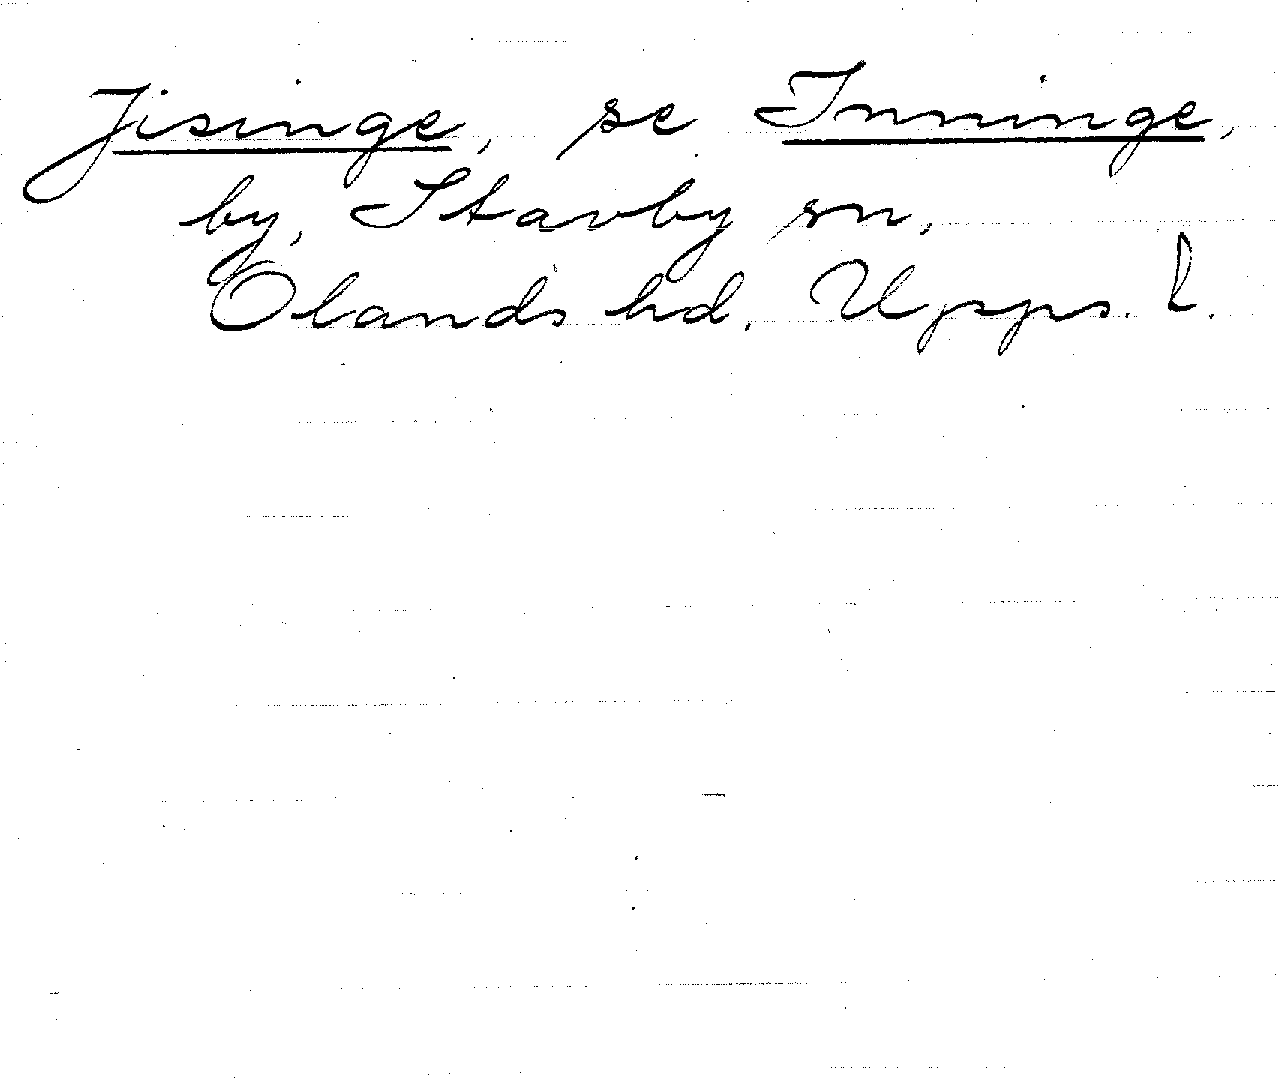 Jisinge, se Inninge,
by, Stavby sn,
Olands hd, Upps. l.